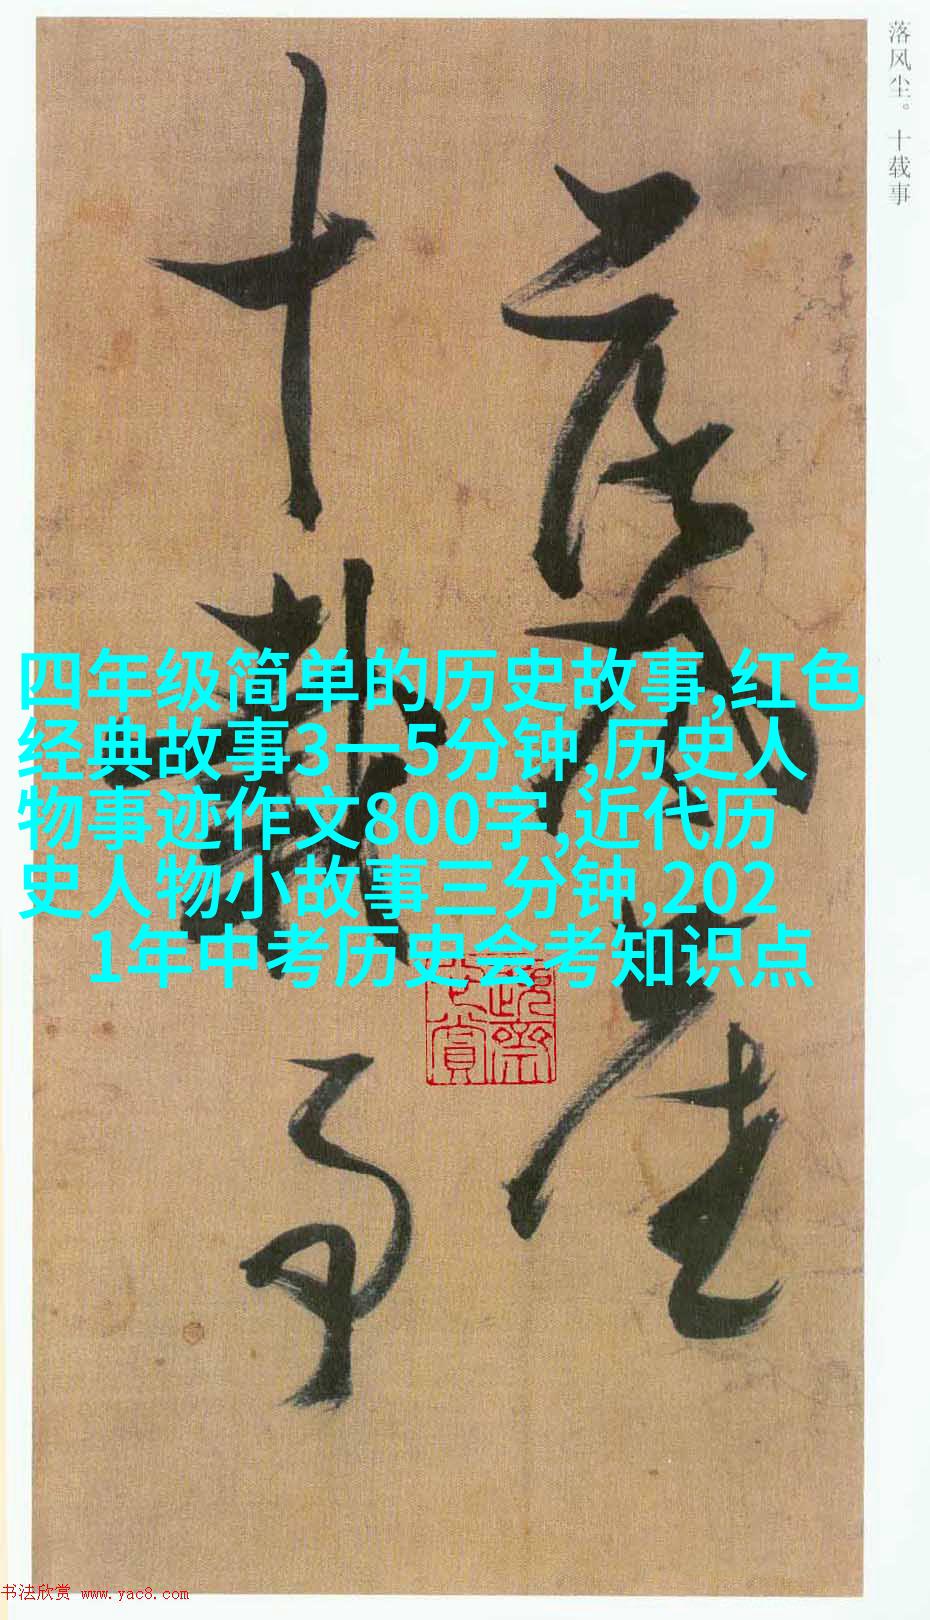 落风尘。十载事
落风尘
十载事
四年级简单的历史故事,红色
经典故事3一5分钟,历史人
物事迹作文800字,近代历
史人物小故事三分钟,202
1年中考历史会考知识点
书法欣赏 www.yac8.com